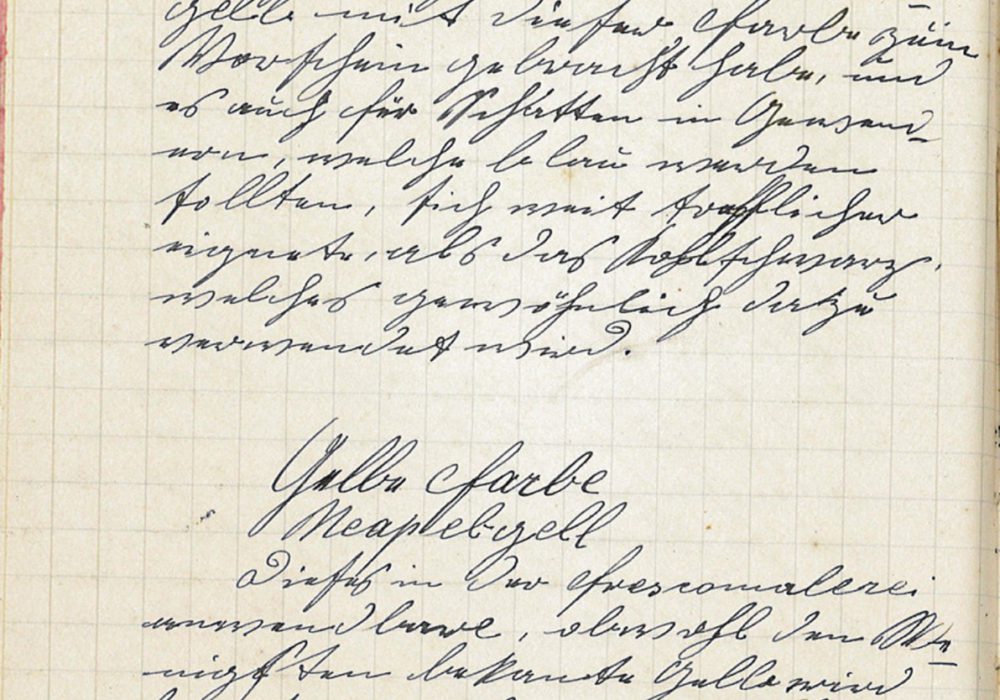 gelb mit dieser Farbe zum
Vorschein gebracht habe, und
es auch für Schatten in Gewänd-
ern, welche blau werden
sollten, sich weit trefflicher
eignete, als das Kohlschwarz,
welches gewöhnlich dazu
verwendet wird.
Gelbe Farbe
Neapelgelb
Dieses in der Frescomalerei
anwendbare, obwohl den We-
nigsten bekannte Gelb wird